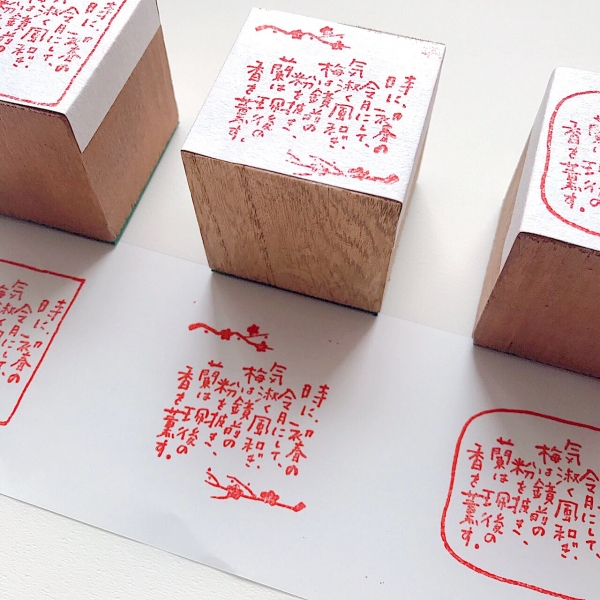 時に、初春の
令月にして、
気淑く風和ぎ、
梅は鏡前の
粉を披き、
蘭は珮後の
香を薫す。
時に、初春の
令月にして、
気淑く風和ぎ、
梅は鏡前の
粉を披き、
蘭は珮後の
香を薫す。
香を薫す。
時に、初春の
令月にして、
令月にして、
気淑く風和ぎ、
梅は鏡前の
粉を披き、
蘭は珮後の
香を薫す。